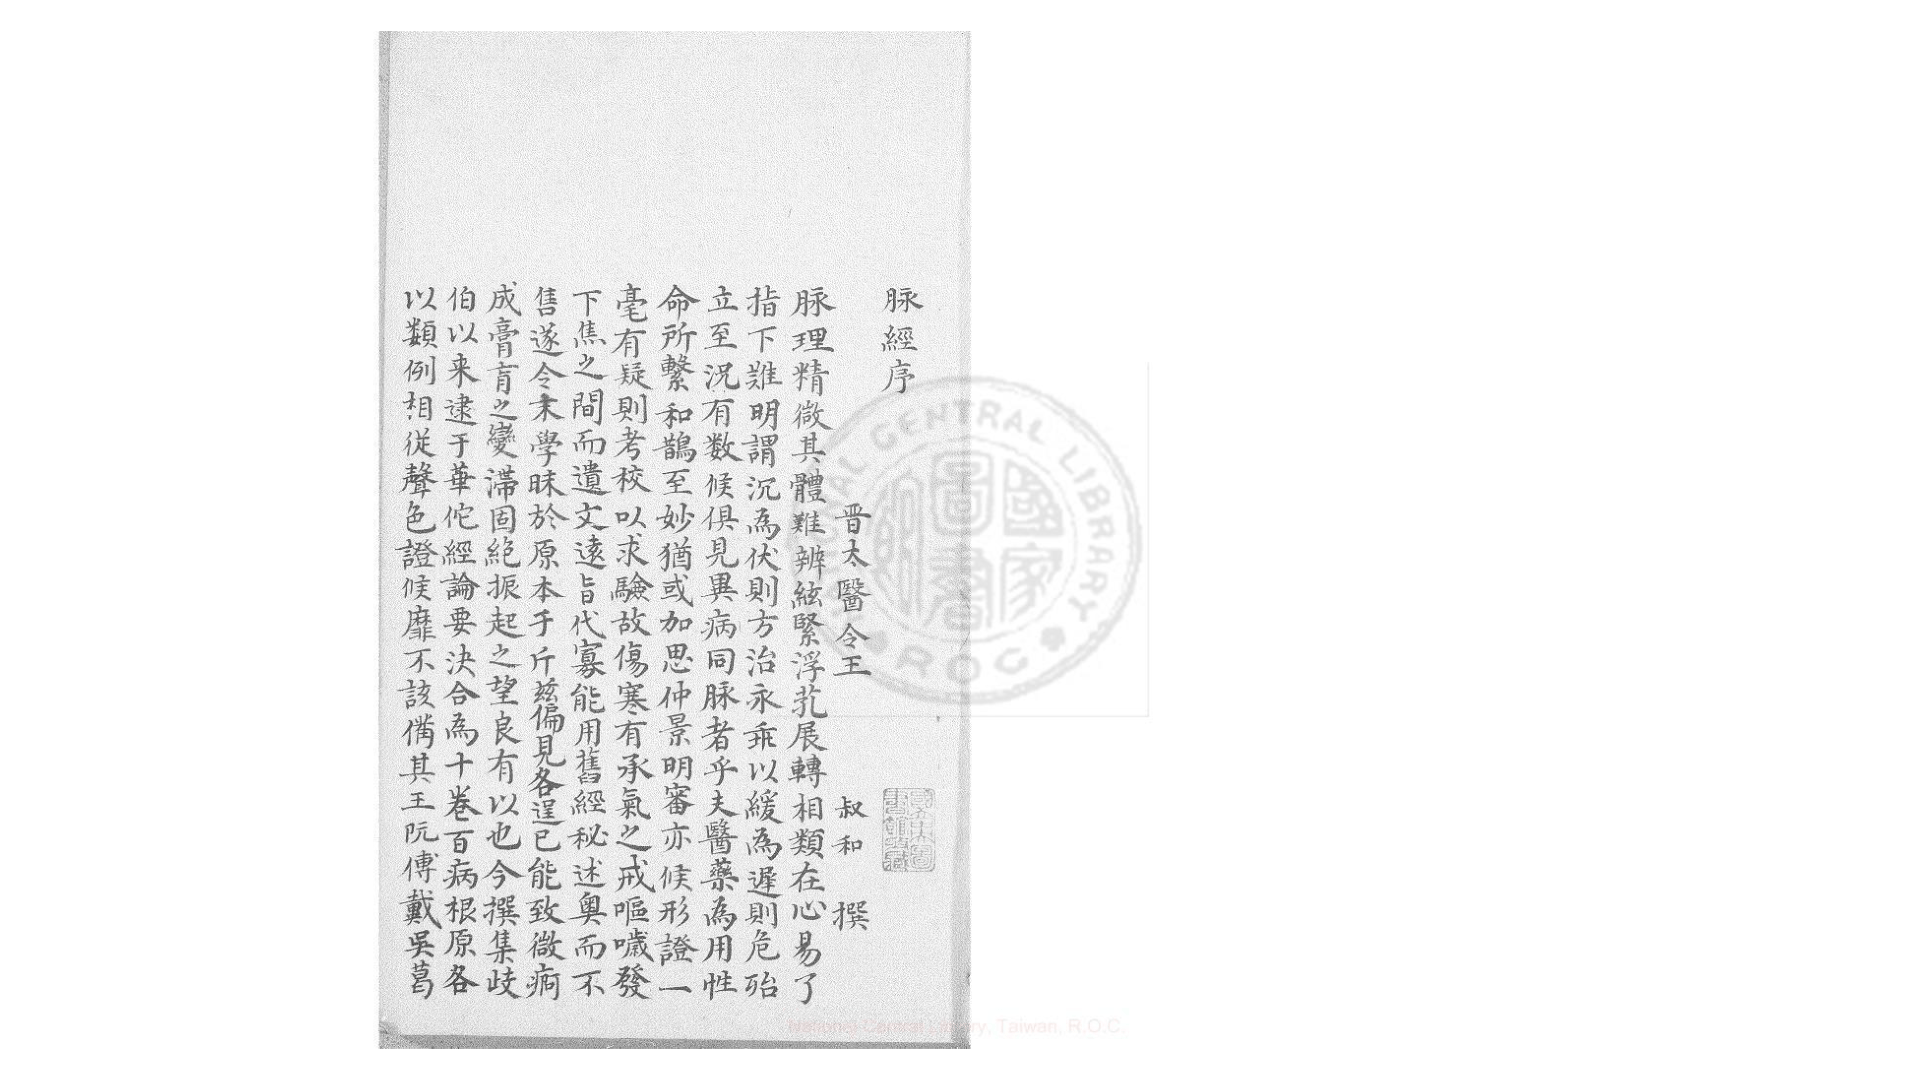 脉經序
晋太醫令王叔和撰
脉理精微其體難辨絃緊浮芤展轉相類在心易了
指下難明謂沉為伏則方治永乖以緩為遲則危殆
立至況有数候俱見異病同脉者乎夫醫藥為用性
命所繫和鵲至妙猶或加思仲景明審亦候形證一
毫有疑則考校以求驗故傷寒有承氣之戒嘔噦發
下焦之間而遺文遠旨代寡能用舊經秘述奧而不
售遂令末學昧於原本于斤玆偏見各逞已能致微痾
成膏肓之變滯固絶振起之望良有以也今撰集歧
伯以来逮于華佗經論要决合為十卷百病根原各
以類例相從聲色證候靡不該備其王阮傅戴吳葛
NATIONAL CENTRAL LIBRARY ROC
國家圖書館
National Central Library, Taiwan, R.O.C.